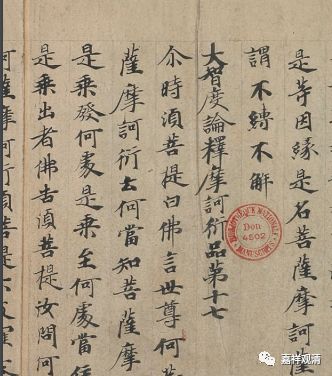 是等因緣是名菩薩摩訶薩
謂不縛不解
大智度論釋摩訶衍品第十七
尒時湏菩提白佛言世尊何
薩摩訶衍云何當知菩薩摩
是乘發何處是乘至何處當
是乘出者佛告湏菩提汝問何
薩摩訶衍湏菩提六波羅
BIBLIOTHÈQUE NATIONALE
Don
4502
MANUSCRITS
嘉祥观清